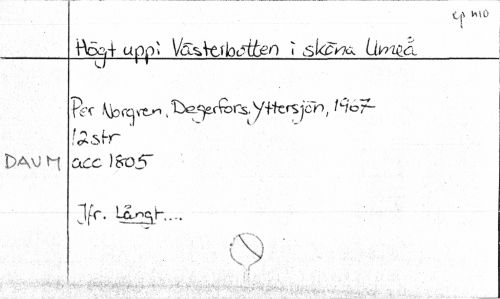 Ep n10
Högt uppi Västerbotten i sköna Umeå
Per Norgren, Degerfors, Yttersjön, 1967
12 str
DAUM acc 1805
Jfr. Långt....